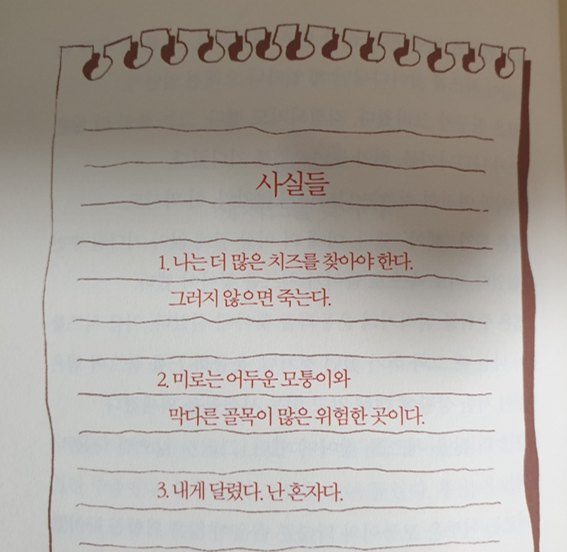 사실들
1. 나는 더 많은 치즈를 찾아야 한다.
그러지 않으면 죽는다.
2. 미로는 어두운 모퉁이와
막다른 골목이 많은 위험한 곳이다.
3. 내게 달렸다. 난 혼자다.